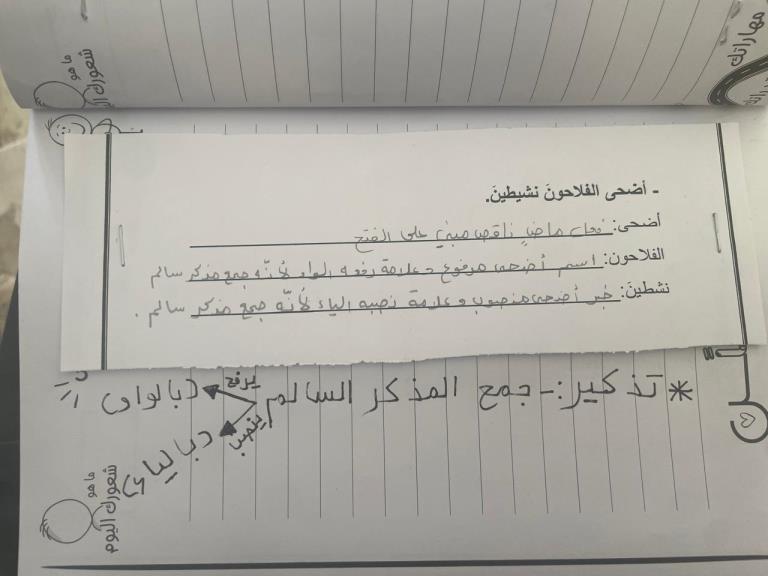 مهاراتك
ما هو
شعورك
- أضحى الفلاحونَ نشيطينَ.
أضحى: فعل ماضٍ ناقص مبني على الفتح
الفلاحون: اسم أضحى مرفوع وعلامة رفعه الواو لأنّه جمع مذكر سالم
نشطينَ: خبر أضحى منصوب وعلامة نصبه الياء لأنّه جمع مذكر سالم .
* تذكير :- جمع المذكر السالم يرفع (بالواو)
ينصب (بالياء)
ما هو
شعورك اليوم